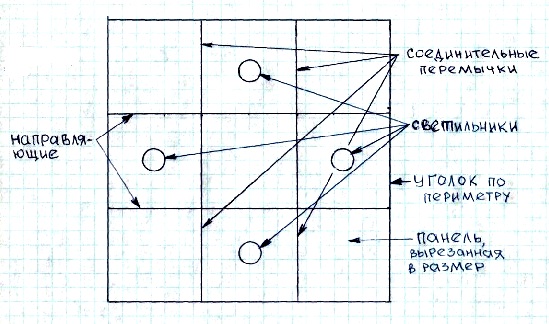 соединительные
перемычки
светильники
направля-
ющие
уголок по
периметру
панель,
вырезанная
в размер